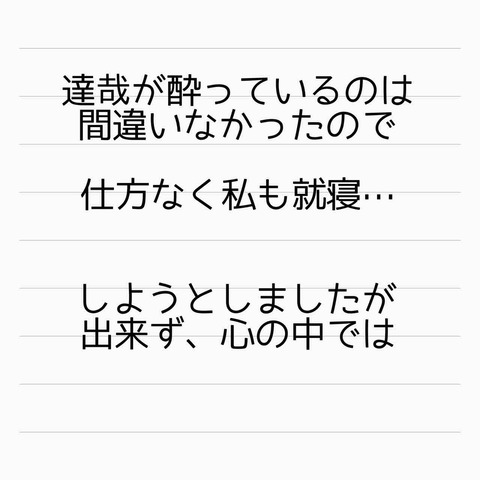 達哉が酔っているのは
間違いなかったので
仕方なく私も就寝…
しようとしましたが
出来ず、心の中では